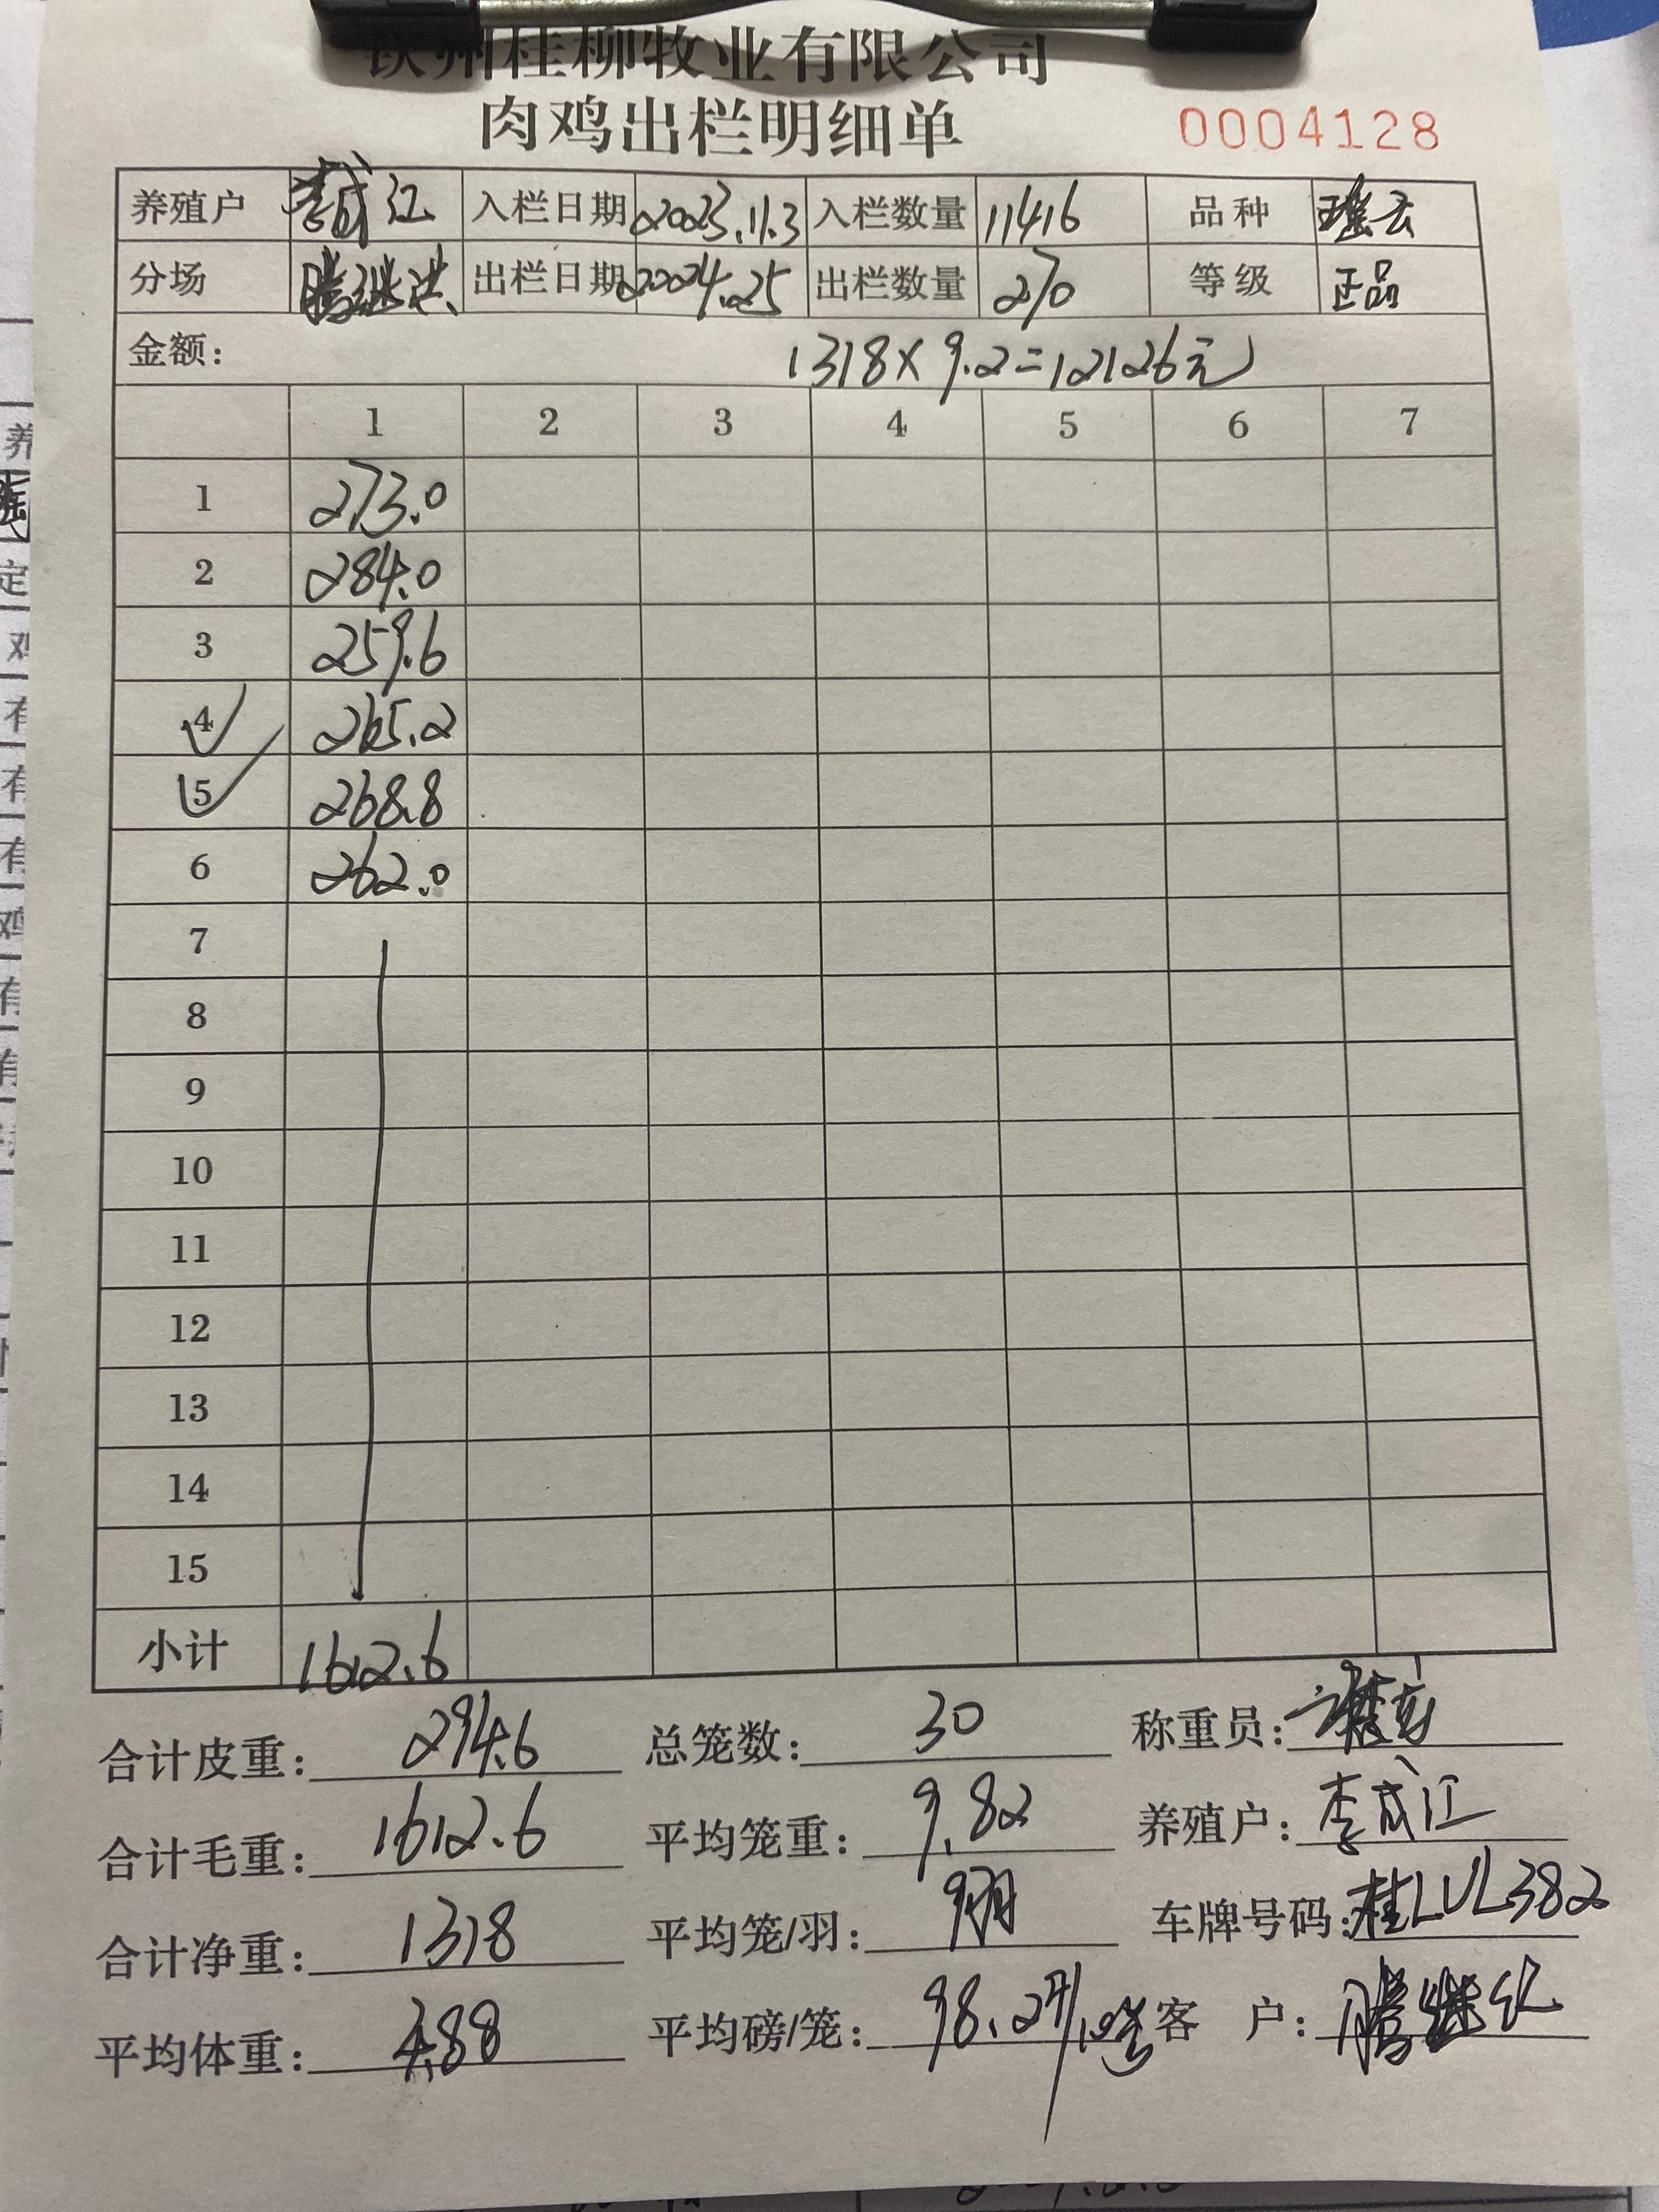 钦州桂柳牧业有限公司
肉鸡出栏明细单 0004128
养殖户 李成江 入栏日期 2023.11.3 入栏数量 11416 品种 瑶云
分场 出栏日期 2024.2.5 出栏数量 270 等级 正品
金额: 1318×9.2=12126元
1 2 3 4 5 6 7
1 273.0
2 284.0
3 259.6
4 265.2
5 268.8
6 262.0
7
8
9
10
11
12
13
14
15
小计 1612.6
合计皮重: 294.6 总笼数: 30 称重员:
合计毛重: 1612.6 平均笼重: 9.82 养殖户: 李成江
合计净重: 1318 平均笼/羽: 9羽 车牌号码: 桂LUL382
平均体重: 4.88 平均磅/笼: 98.2斤/10笼 客 户: